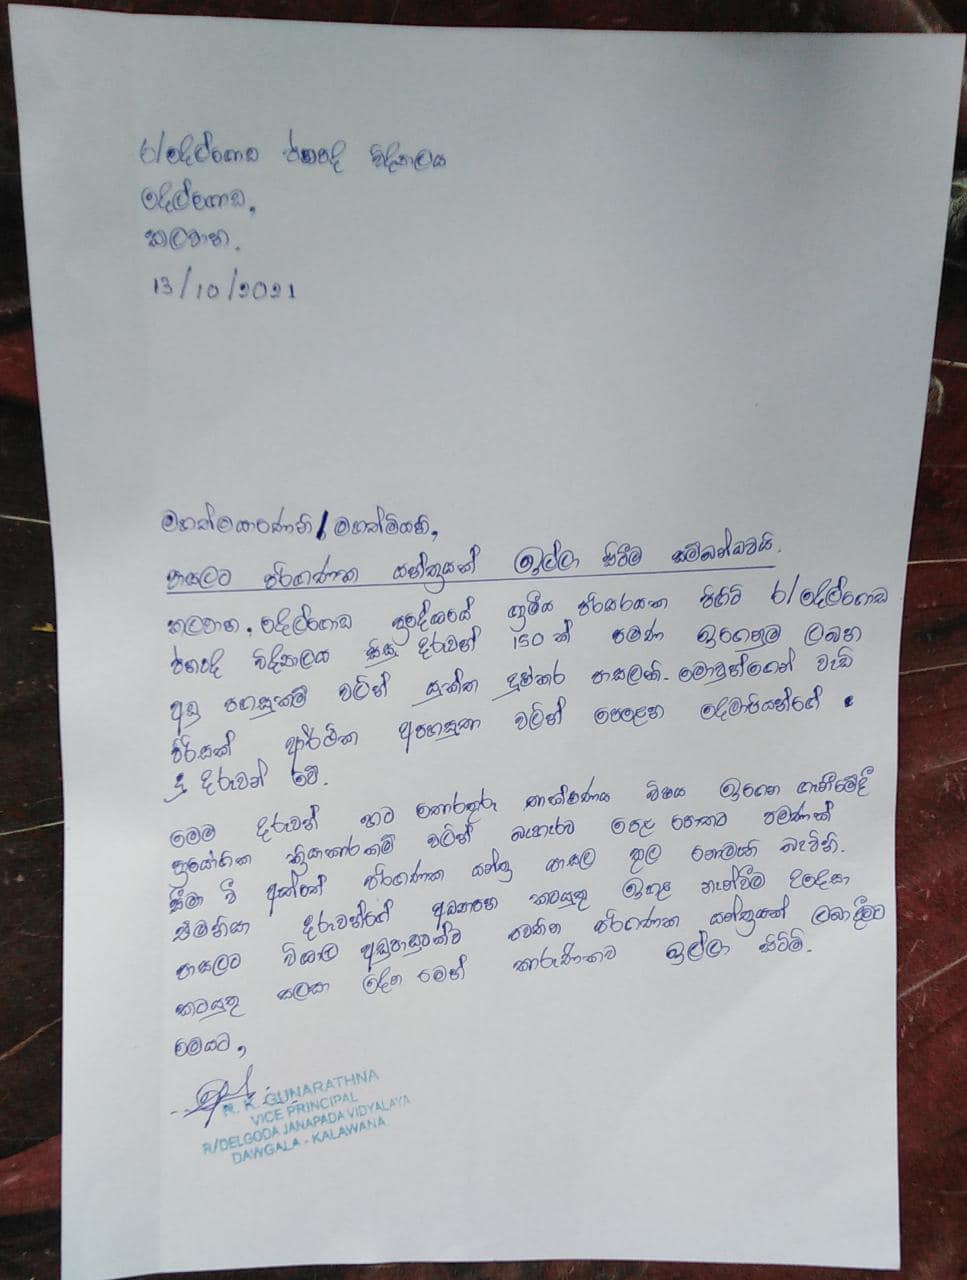 ර/දෙල්ගොඩ ජනපද විද්‍යාලය
දෙල්ගොඩ,
කලවාන.
13/10/2021
මහත්මයාණෙනි/මහත්මියනි,
පාසලට පරිගණක යන්ත්‍රයක් ඉල්ලා සිටීම සම්බන්ධවයි.
කලවාන, දෙල්ගොඩ ප්‍රදේශයේ ග්‍රාමීය පරිසරයක පිහිටි ර/දෙල්ගොඩ
ජනපද විද්‍යාලය සිසු දරුවන් 150 ක් පමණ ඉගෙනුම ලබන
අඩු පහසුකම් වලින් යුක්ත දුෂ්කර පාසලකි. මොවුන්ගෙන් වැඩි
පිරිසක් ආර්ථික අපහසුතා වලින් පෙළෙන දෙමාපියන්ගේ
දූ දරුවන් වේ.
මෙම දරුවන් හට තොරතුරු තාක්ෂණය විෂය ඉගෙන ගැනීමේදී
ප්‍රායෝගික ක්‍රියාකාරකම් වලින් බැහැරව පෙළ පොතට පමණක්
සීමා වී ඇත්තේ පරිගණක යන්ත්‍ර පාසල තුල නොමැති බැවිනි.
එමනිසා දරුවන්ගේ අධ්‍යාපන කටයුතු ඉහළ නැංවීම උදෙසා
පාසලට විශාල අඩුපාඩුවක්ව පවතින පරිගණක යන්ත්‍රයක් ලබාදීමට
කටයුතු සලසා දෙන මෙන් කාරුණිකව ඉල්ලා සිටිමි.
මෙයට,
R. K. GUNARATHNA
VICE PRINCIPAL
R/DELGODA JANAPADA VIDYALAYA
DAWGALA - KALAWANA